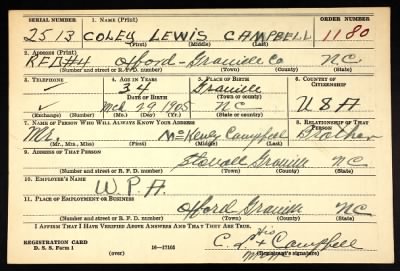 SERIAL NUMBER 1. NAME (Print) ORDER NUMBER
2513 COLEY LEWIS CAMPBELL 1180
(First) (Middle) (Last)
2. ADDRESS (Print)
RFD#4 Oxford - Granville Co N.C.
(Number and street or R. F. D. number) (Town) (County) (State)
3. TELEPHONE 4. AGE IN YEARS 5. PLACE OF BIRTH 6. COUNTRY OF CITIZENSHIP
34 Granville
DATE OF BIRTH (Town or county)
Mch 29 1905 NC USA
(Exchange) (Number) (Mo.) (Day) (Yr.) (State or country)
7. NAME OF PERSON WHO WILL ALWAYS KNOW YOUR ADDRESS 8. RELATIONSHIP OF THAT PERSON
Mr. McKenly Campbell Brother
(Mr., Mrs., Miss) (First) (Middle) (Last)
9. ADDRESS OF THAT PERSON
Stovall Granville NC
(Number and street or R. F. D. number) (Town) (County) (State)
10. EMPLOYER'S NAME
W.P.A.
11. PLACE OF EMPLOYMENT OR BUSINESS
Oxford Granville NC
(Number and street or R. F. D. number) (Town) (County) (State)
I AFFIRM THAT I HAVE VERIFIED ABOVE ANSWERS AND THAT THEY ARE TRUE.
his
C. L. X Campbell
REGISTRATION CARD
D. S. S. Form 1 (over) 16—17105 mark (Registrant's signature)